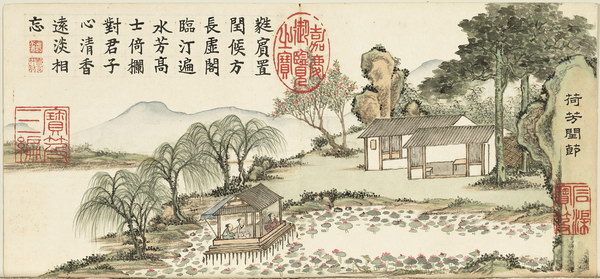 荷芳閏節
蕤賓置
閏候方
長虛閣
臨汀遍
水芳高
士倚欄
對君子
心清香
遠淡相
忘
嘉慶御覽之寶
石渠寶笈
寶笈三編